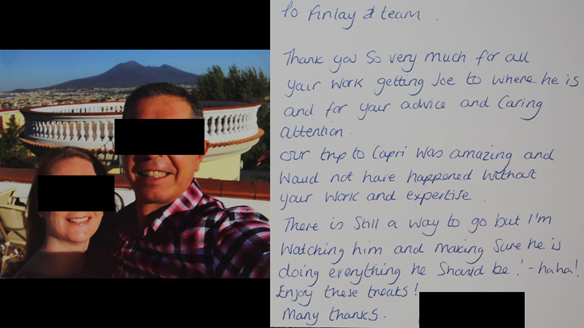 To Finlay & team.
Thank you so very much for all
your work getting Joe to where he is
and for your advice and caring
attention.
Our trip to Capri was amazing and
would not have happened without
your work and expertise.
There is still a way to go but I'm
watching him and making sure he is
doing everything he should be! - haha!
Enjoy these treats!
Many thanks.